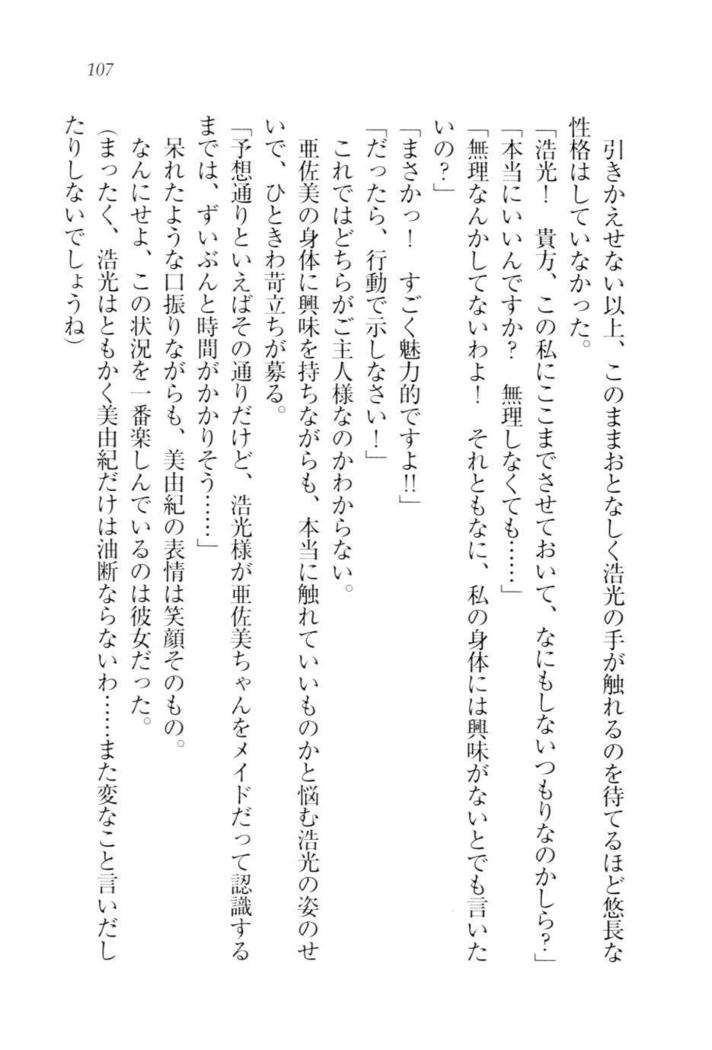 107
引きかえせない以上、このままおとなしく浩光の手が触れるのを待てるほど悠長な
性格はしていなかった。
「浩光！　貴方、この私にここまでさせておいて、なにもしないつもりなのかしら？」
「本当にいいんですか？　無理しなくても……」
「無理なんかしてないわよ！　それともなに、私の身体には興味がないとでも言いた
いの？」
「まさかっ！　すごく魅力的ですよ!!」
「だったら、行動で示しなさい！」
これではどちらがご主人様なのかわからない。
亜佐美の身体に興味を持ちながらも、本当に触れていいものかと悩む浩光の姿のせ
いで、ひときわ苛立ちが募る。
「予想通りといえばその通りだけど、浩光様が亜佐美ちゃんをメイドだって認識する
までは、ずいぶんと時間がかかりそう……」
呆れたような口振りながらも、美由紀の表情は笑顔そのもの。
なんにせよ、この状況を一番楽しんでいるのは彼女だった。
（まったく、浩光はともかく美由紀だけは油断ならないわ……また変なこと言いだし
たりしないでしょうね）